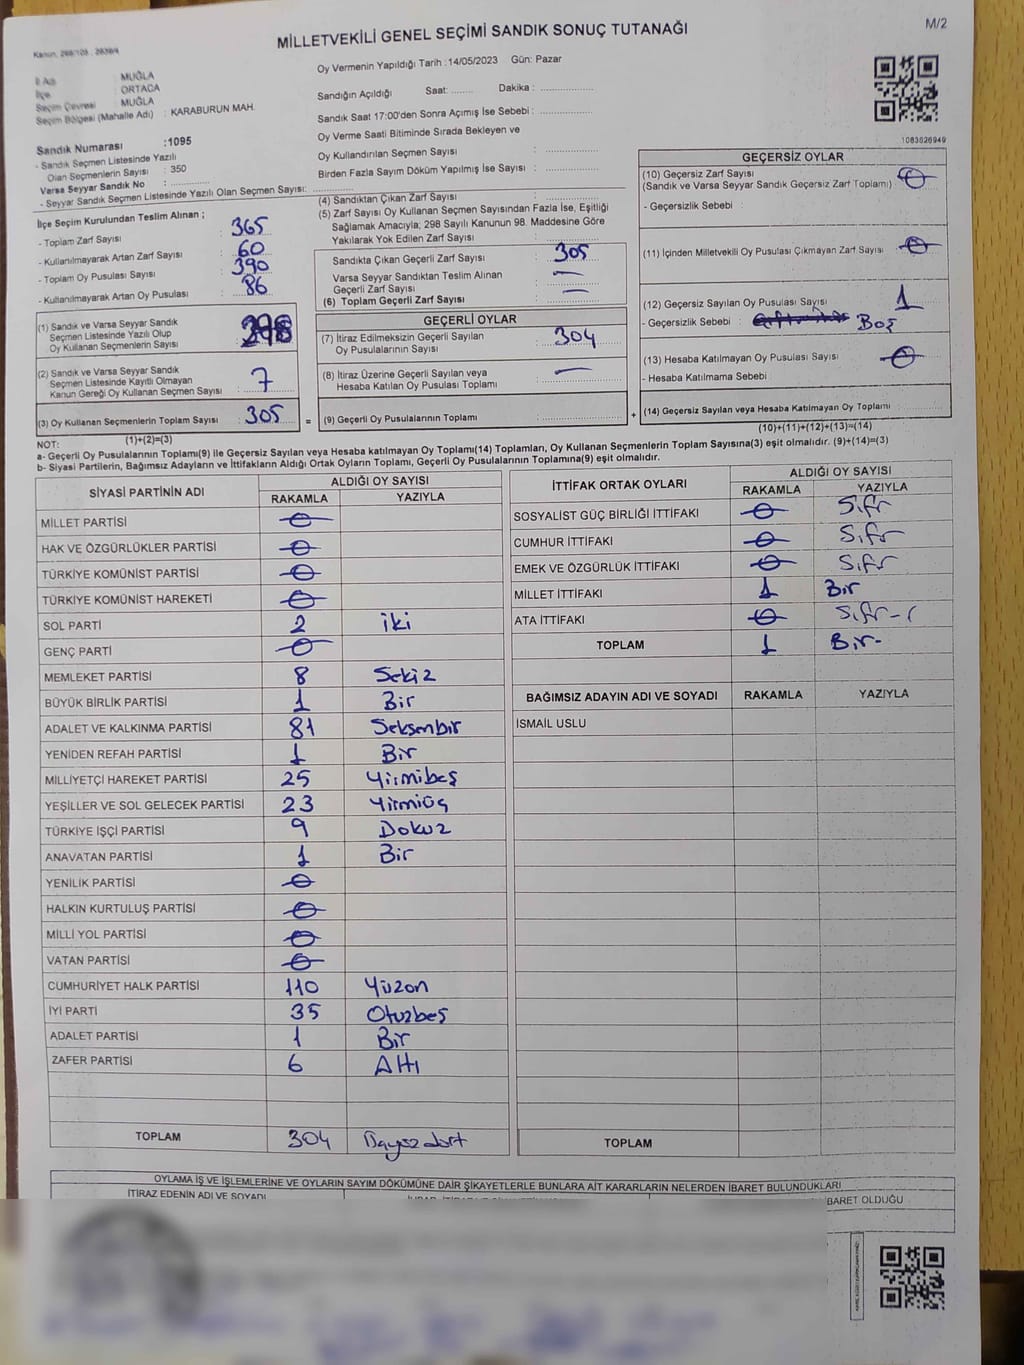 M/2
MİLLETVEKİLİ GENEL SEÇİMİ SANDIK SONUÇ TUTANAĞI
İl Adı : MUĞLA
İlçe : ORTACA
Seçim Çevresi : MUĞLA
Seçim Bölgesi (Mahalle Adı) : KARABURUN MAH.
Sandık Numarası :1095
- Sandık Seçmen Listesinde Yazılı
Olan Seçmenlerin Sayısı : 350
Varsa Seyyar Sandık No :
- Seyyar Sandık Seçmen Listesinde Yazılı Olan Seçmen Sayısı:
Oy Vermenin Yapıldığı Tarih :14/05/2023 Gün: Pazar
Sandığın Açıldığı Saat: Dakika :
Sandık Saat 17:00'den Sonra Açımış İse Sebebi :
Oy Verme Saati Bitiminde Sırada Bekleyen ve
Oy Kullandırılan Seçmen Sayısı :
Birden Fazla Sayım Döküm Yapılmış İse Sayısı :
1083626949
İlçe Seçim Kurulundan Teslim Alınan ;
- Toplam Zarf Sayısı : 365
- Kullanılmayarak Artan Zarf Sayısı : 60
- Toplam Oy Pusulası Sayısı : 390
- Kullanılmayarak Artan Oy Pusulası : 86
(1) Sandık ve Varsa Seyyar Sandık
Seçmen Listesinde Yazılı Olup
Oy Kullanan Seçmenlerin Sayısı :
(2) Sandık ve Varsa Seyyar Sandık
Seçmen Listesinde Kayıtlı Olmayan
Kanun Gereği Oy Kullanan Seçmen Sayısı : 7
(3) Oy Kullanan Seçmenlerin Toplam Sayısı : 305
(1)+(2)=(3)
(4) Sandıktan Çıkan Zarf Sayısı :
(5) Zarf Sayısı Oy Kullanan Seçmen Sayısından Fazla İse, Eşitliği
Sağlamak Amacıyla; 298 Sayılı Kanunun 98. Maddesine Göre
Yakılarak Yok Edilen Zarf Sayısı :
Sandıkta Çıkan Geçerli Zarf Sayısı : 305
Varsa Seyyar Sandıktan Teslim Alınan
Geçerli Zarf Sayısı : —
(6) Toplam Geçerli Zarf Sayısı : —
GEÇERLİ OYLAR
(7) İtiraz Edilmeksizin Geçerli Sayılan
Oy Pusulalarının Sayısı : 304
(8) İtiraz Üzerine Geçerli Sayılan veya
Hesaba Katılan Oy Pusulası Toplamı : —
= (9) Geçerli Oy Pusulalarının Toplamı :
GEÇERSİZ OYLAR
(10) Geçersiz Zarf Sayısı : 0
(Sandık ve Varsa Seyyar Sandık Geçersiz Zarf Toplamı)
- Geçersizlik Sebebi :
(11) İçinden Milletvekili Oy Pusulası Çıkmayan Zarf Sayısı : 0
(12) Geçersiz Sayılan Oy Pusulası Sayısı : 1
- Geçersizlik Sebebi : Boş
(13) Hesaba Katılmayan Oy Pusulası Sayısı : 0
- Hesaba Katılmama Sebebi :
+ (14) Geçersiz Sayılan veya Hesaba Katılmayan Oy Toplamı :
(10)+(11)+(12)+(13)=(14)
NOT:
a- Geçerli Oy Pusulalarının Toplamı(9) ile Geçersiz Sayılan veya Hesaba katılmayan Oy Toplamı(14) Toplamları, Oy Kullanan Seçmenlerin Toplam Sayısına(3) eşit olmalıdır. (9)+(14)=(3)
b- Siyasi Partilerin, Bağımsız Adayların ve İttifakların Aldığı Ortak Oyların Toplamı, Geçerli Oy Pusulalarının Toplamına(9) eşit olmalıdır.
SİYASİ PARTİNİN ADI ALDIĞI OY SAYISI
RAKAMLA YAZIYLA
MİLLET PARTİSİ 0
HAK VE ÖZGÜRLÜKLER PARTİSİ 0
TÜRKİYE KOMÜNİST PARTİSİ 0
TÜRKİYE KOMÜNİST HAREKETİ 0
SOL PARTİ 2 iki
GENÇ PARTİ 0
MEMLEKET PARTİSİ 8 Sekiz
BÜYÜK BİRLİK PARTİSİ 1 Bir
ADALET VE KALKINMA PARTİSİ 81 Seksenbir
YENİDEN REFAH PARTİSİ 1 Bir
MİLLİYETÇİ HAREKET PARTİSİ 25 Yirmibeş
YEŞİLLER VE SOL GELECEK PARTİSİ 23 Yirmiüç
TÜRKİYE İŞÇİ PARTİSİ 9 Dokuz
ANAVATAN PARTİSİ 1 Bir
YENİLİK PARTİSİ 0
HALKIN KURTULUŞ PARTİSİ 0
MİLLİ YOL PARTİSİ 0
VATAN PARTİSİ 0
CUMHURİYET HALK PARTİSİ 110 Yüzon
İYİ PARTİ 35 Otuzbeş
ADALET PARTİSİ 1 Bir
ZAFER PARTİSİ 6 Altı
TOPLAM 304
İTTİFAK ORTAK OYLARI ALDIĞI OY SAYISI
RAKAMLA YAZIYLA
SOSYALİST GÜÇ BİRLİĞİ İTTİFAKI 0 Sıfır
CUMHUR İTTİFAKI 0 Sıfır
EMEK VE ÖZGÜRLÜK İTTİFAKI 0 Sıfır
MİLLET İTTİFAKI 1 Bir
ATA İTTİFAKI 0 Sıfır
TOPLAM 1 Bir-
BAĞIMSIZ ADAYIN ADI VE SOYADI RAKAMLA YAZIYLA
İSMAİL USLU
TOPLAM
OYLAMA İŞ VE İŞLEMLERİNE VE OYLARIN SAYIM DÖKÜMÜNE DAİR ŞİKAYETLERLE BUNLARA AİT KARARLARIN NELERDEN İBARET BULUNDUKLARI
İTİRAZ EDENİN ADI VE SOYADI
BARET OLDUĞU